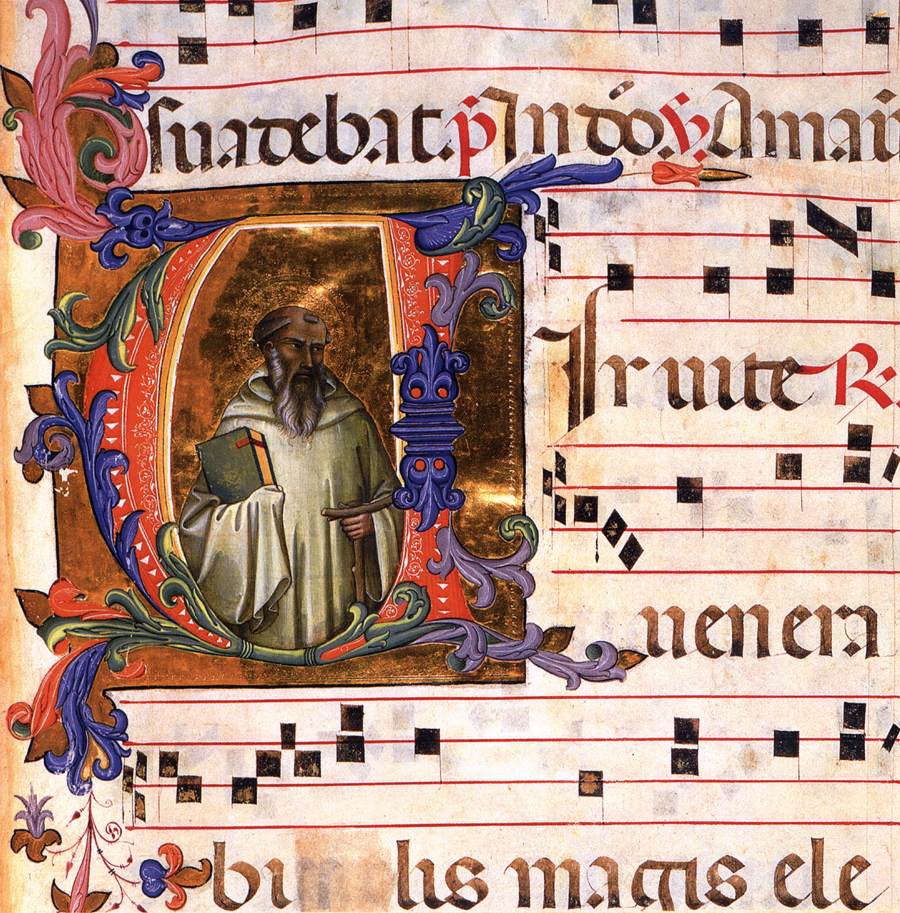 suadebat. p In do. v. Amaui
VIr uite R.
uenera
bi lis magis ele